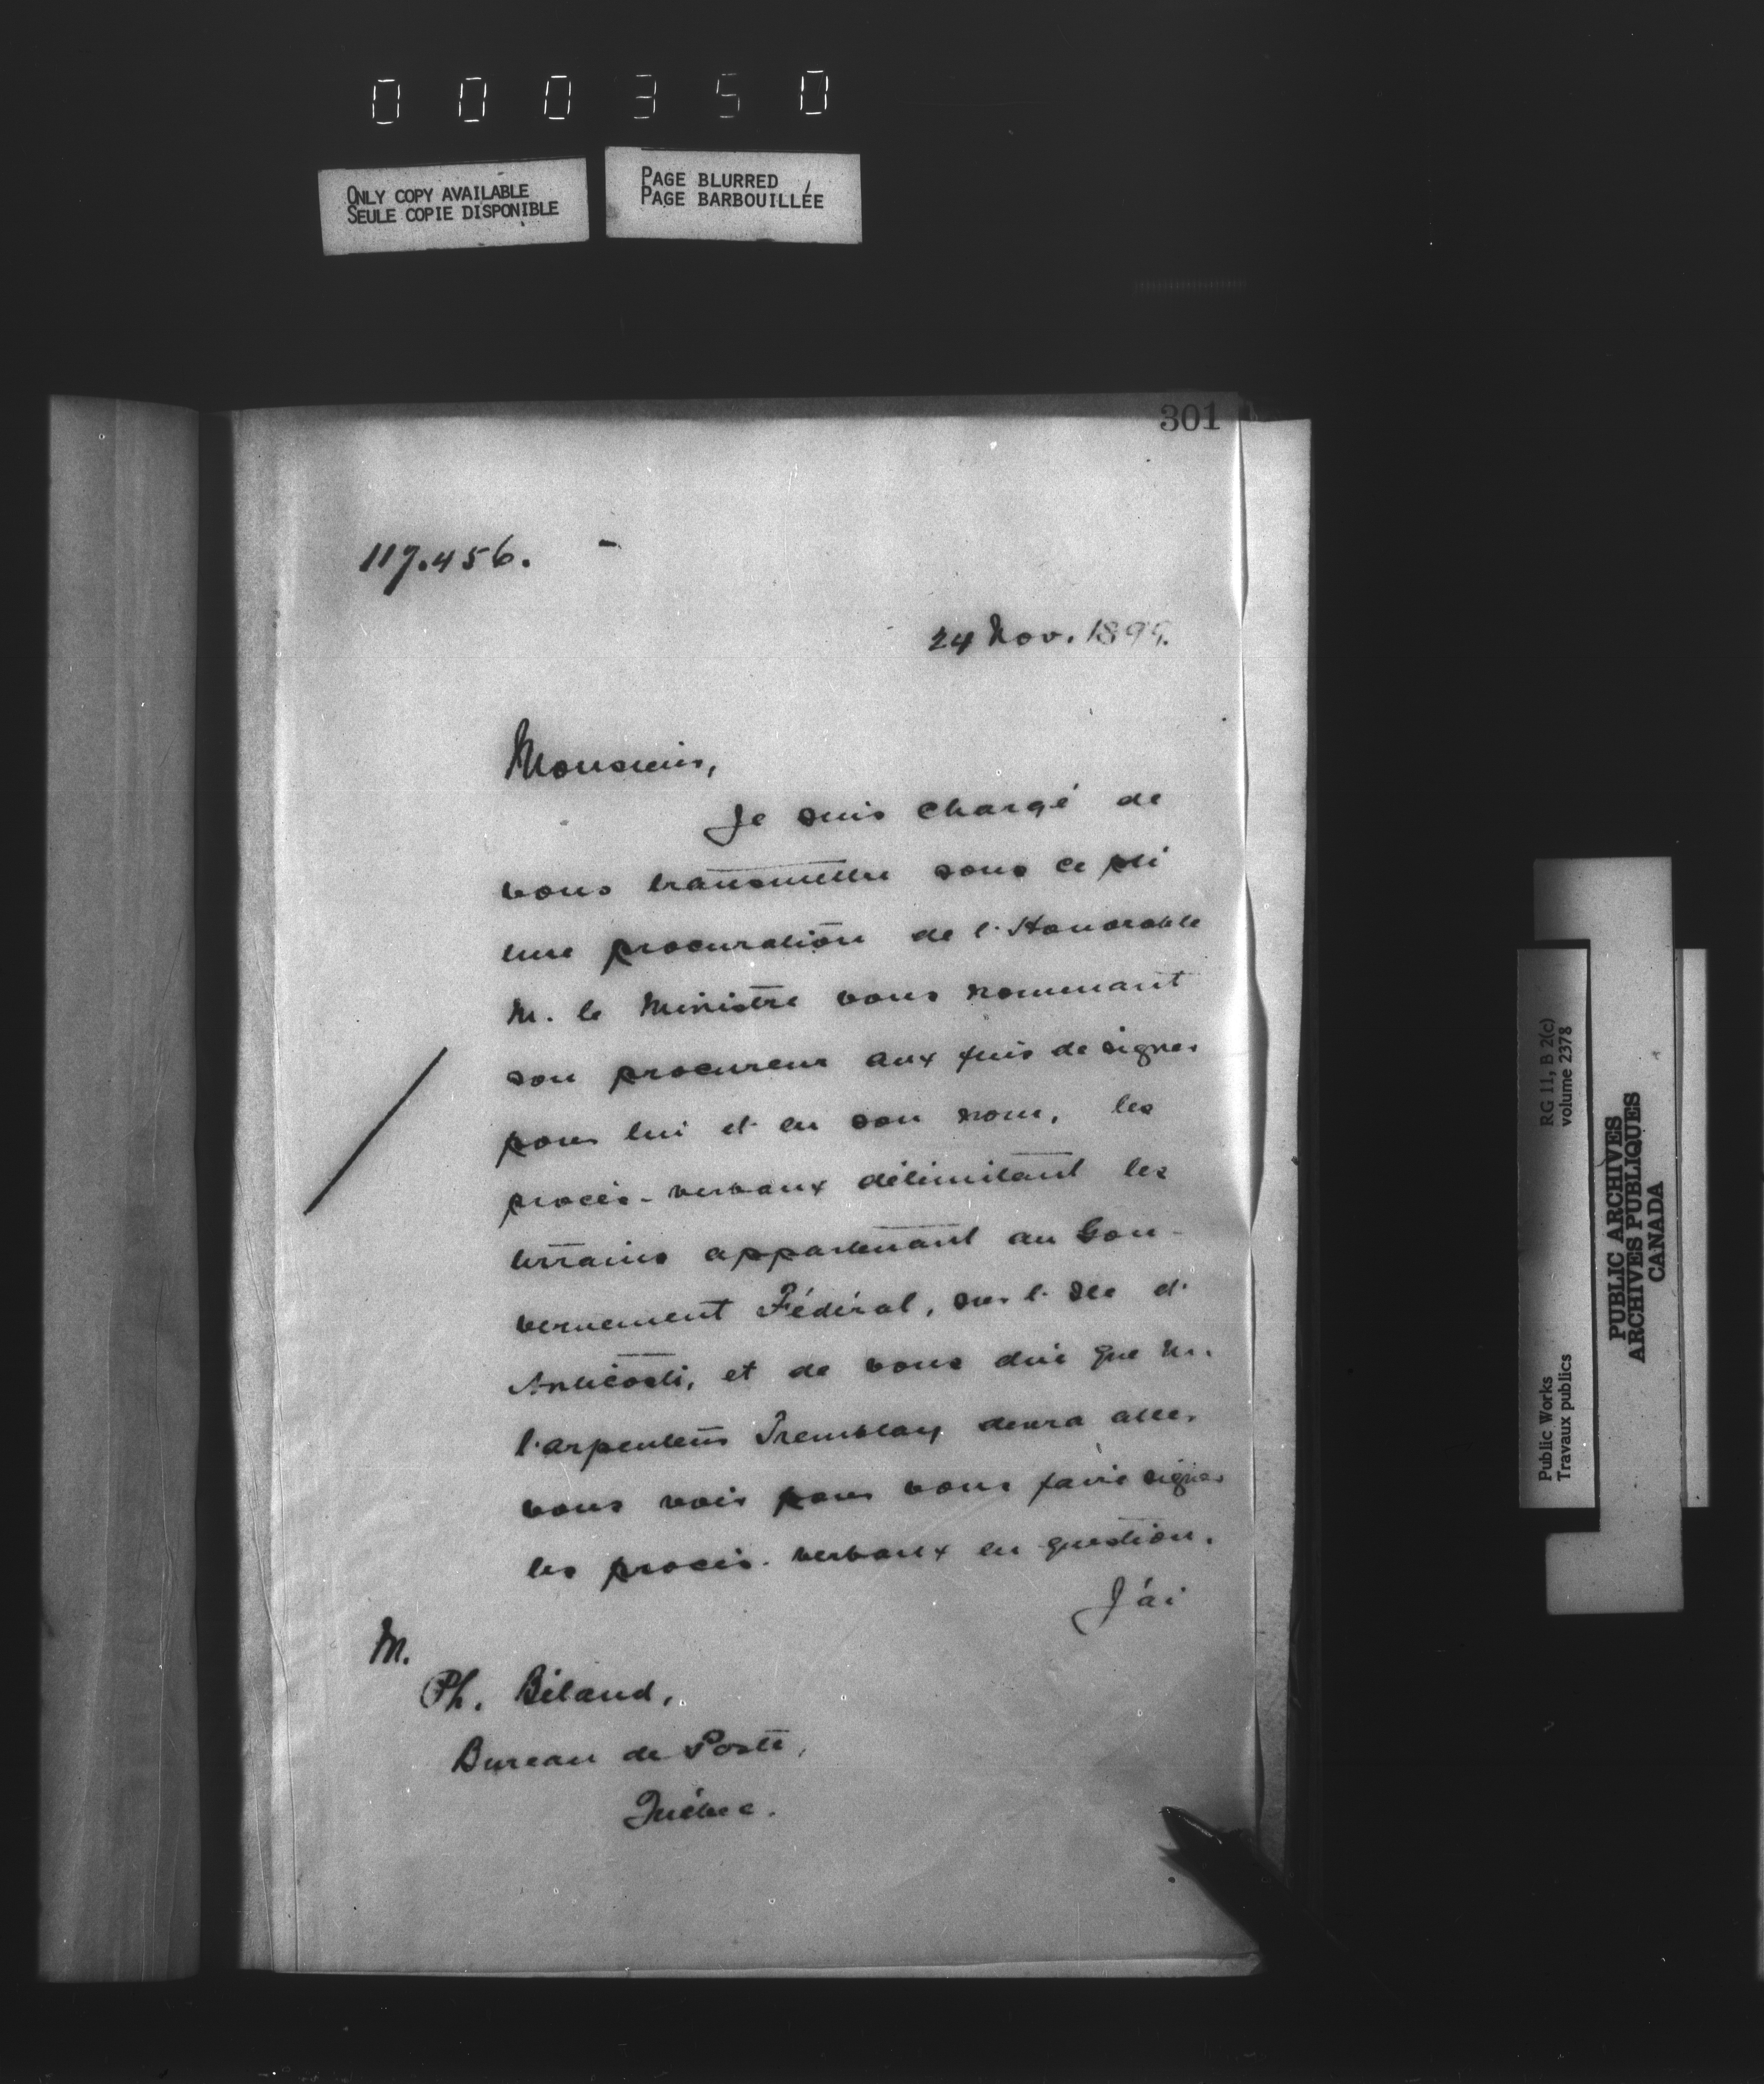 000350
ONLY COPY AVAILABLE
SEULE COPIE DISPONIBLE
PAGE BLURRED
PAGE BARBOUILLÉE
301
117.456.
24 Nov. 1899.
Monsieur,
Je suis chargé de
vous transmettre sous ce pli
une procuration de l'Honorable
M. le Ministre vous nommant
son procureur aux fins de signer
pour lui et en son nom, les
procès-verbaux délimitant les
terrains appartenant au Gou-
vernement Fédéral, sur l'Ile d'
Anticosti, et de vous dire que M.
l'arpenteur Tremblay devra aller
vous voir pour vous faire signer
les procès-verbaux en question.
J'ai
M.
Ph. Béland,
Bureau de Poste,
Québec.
Public Works
Travaux publics
RG 11, B 2(c)
volume 2378
PUBLIC ARCHIVES
ARCHIVES PUBLIQUES
CANADA